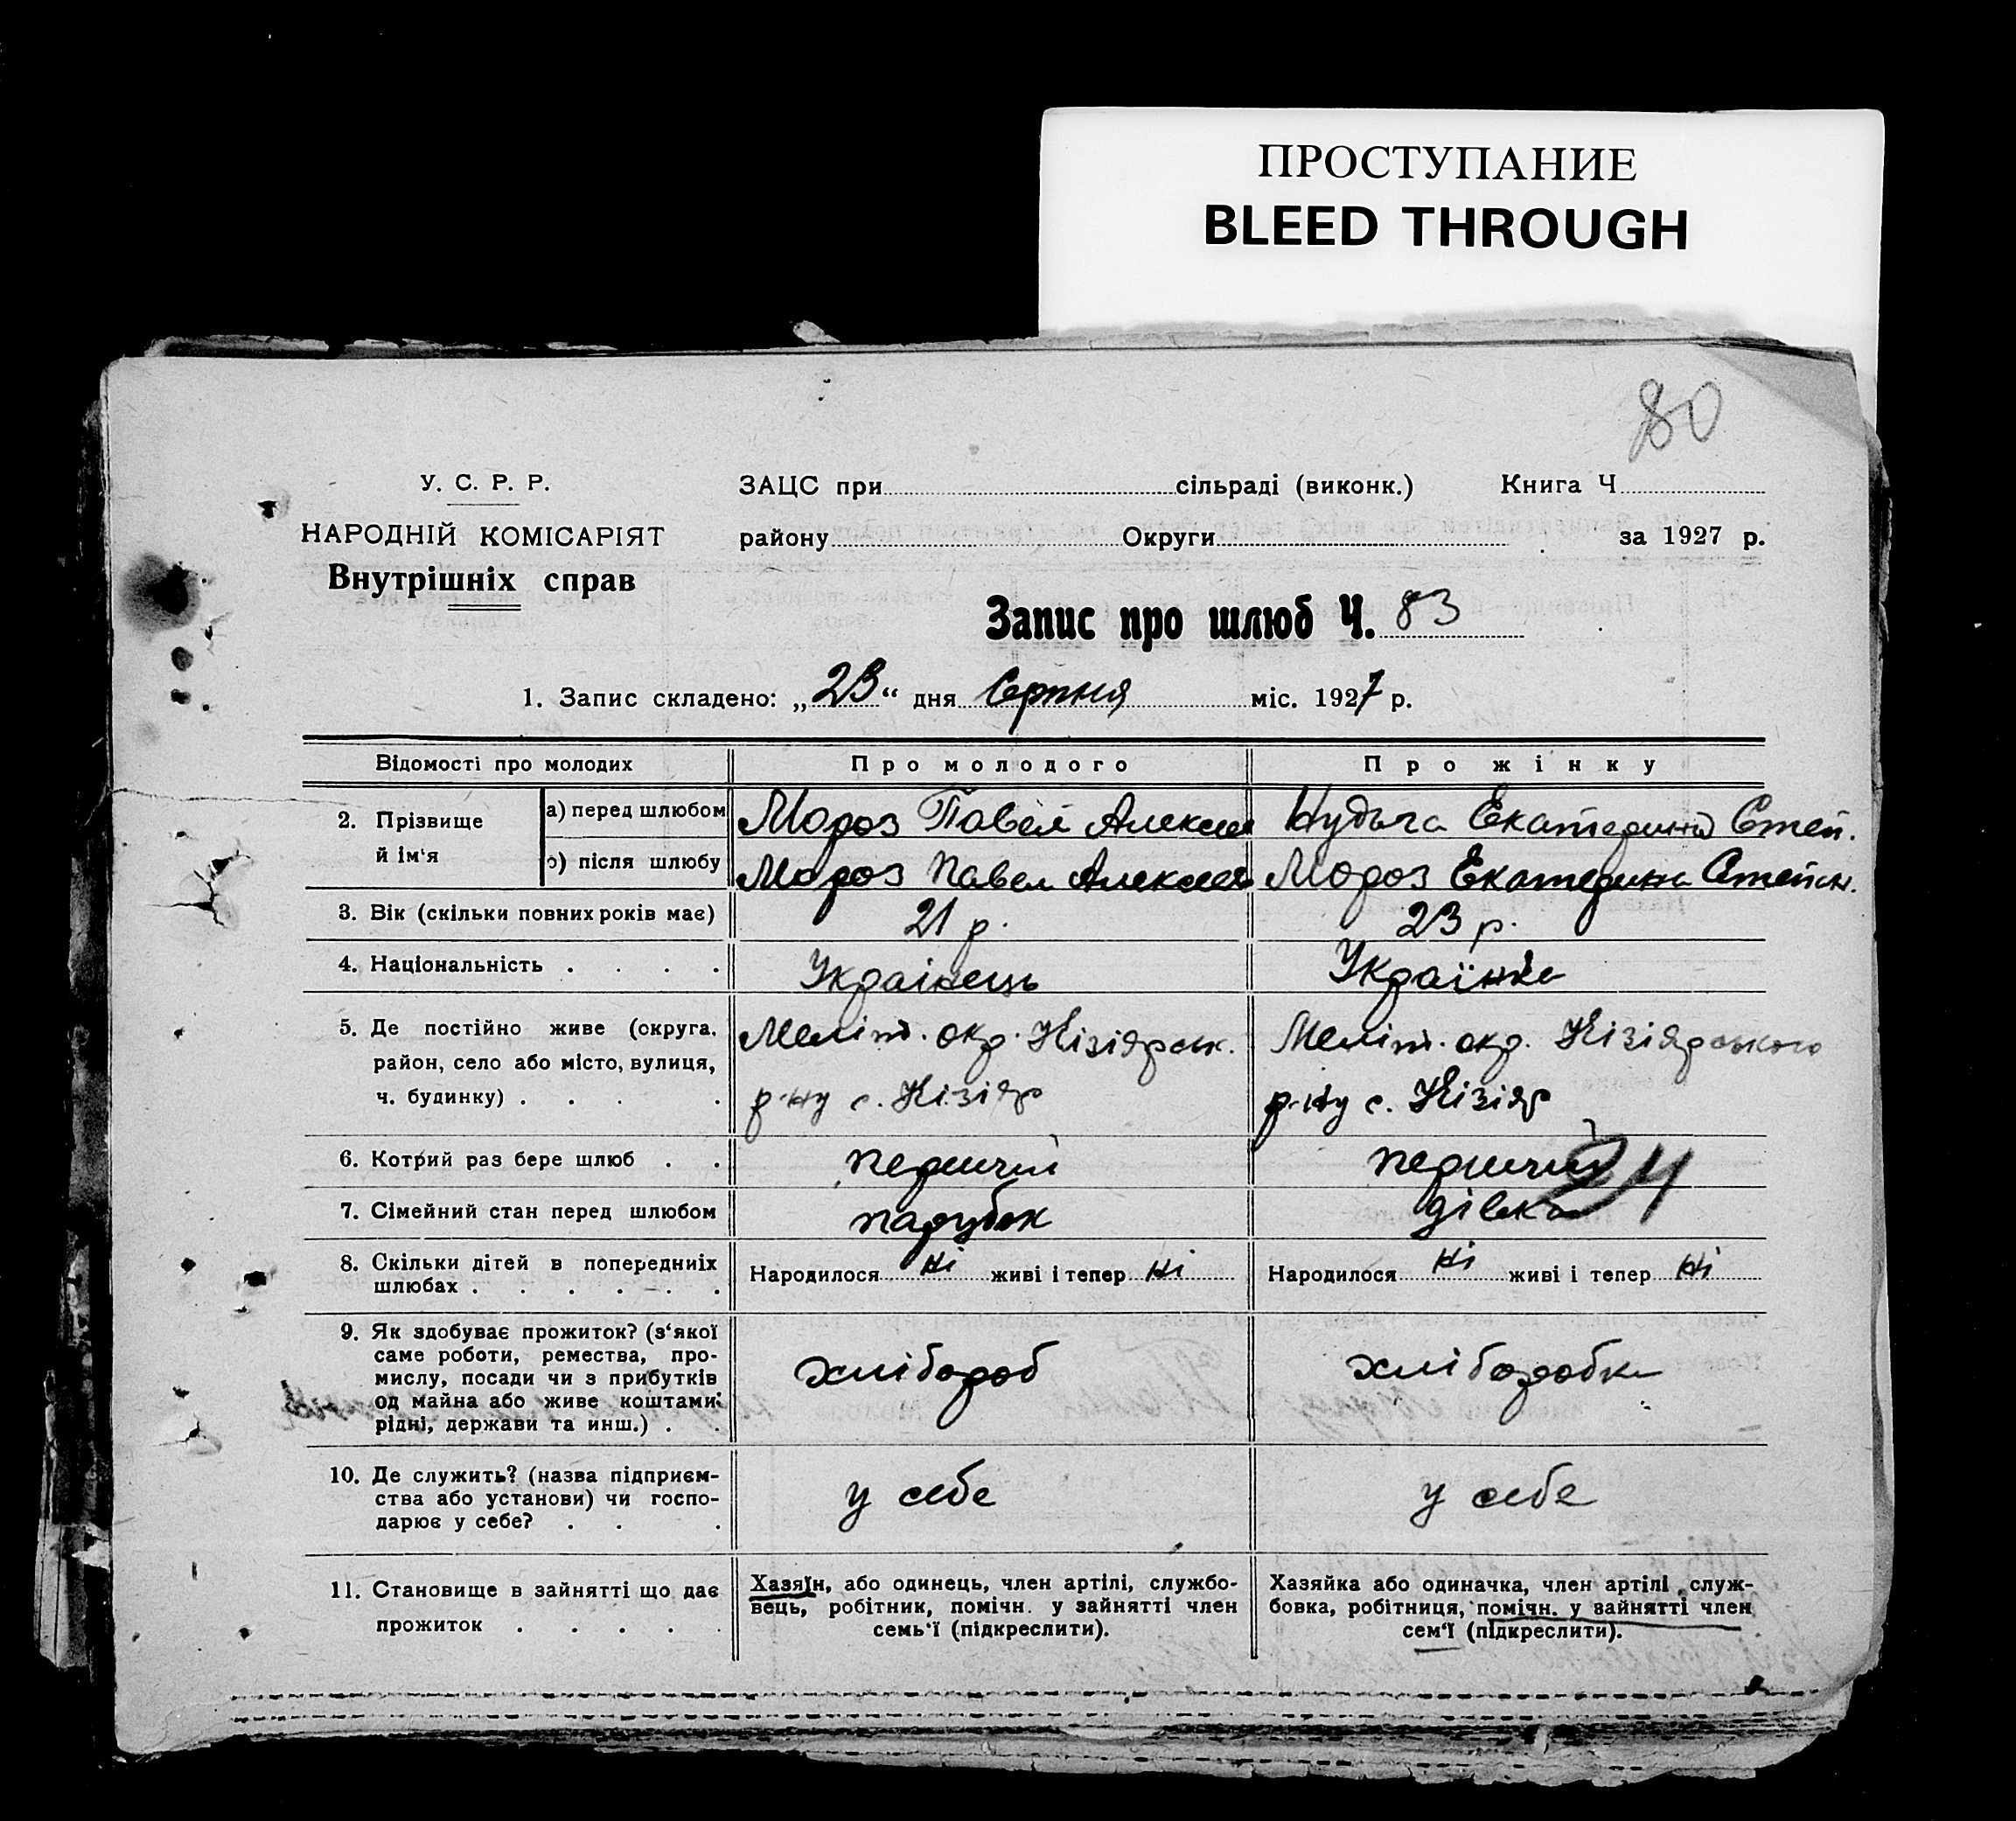 ПРОСТУПАНИЕ
BLEED THROUGH
80
У. С. Р. Р.
НАРОДНІЙ КОМІСАРІЯТ
Внутрішніх справ
ЗАЦС при сільраді (виконк.) Книга Ч
району Округи за 1927 р.
Запис про шлюб Ч. 83
1. Запис складено: „23“ дня Серпня міс. 1927 р.
Відомості про молодих Про молодого Про жінку
2. Прізвище й ім‘я
а) перед шлюбом Мороз Павел Алексеев Екатерина Степ.
після шлюбу Мороз Павел Алексеев Мороз Екатерина Степан.
3. Вік (скільки повних років має) 21 р. 23 р.
4. Національність . . . . Украінець Українка
5. Де постійно живе (округа, район, село або місто, вулиця, ч. будинку) . . . .
Меліт. окр. Кізіярськ.
р-ну с. Кізіяр
Меліт. окр. Кізіярського
р-ну с. Кізіяр
6. Котрий раз бере шлюб . . первчий первчий
24
7. Сімейний стан перед шлюбом парубок дівка
8. Скільки дітей в попередниіх шлюбах . . . . . .
Народилося ні живі і тепер ні
Народилося ні живі і тепер ні
9. Як здобуває прожиток? (з‘якої
саме роботи, ремества, про-
мислу, посади чи з прибутків
од майна або живе коштами
рідні, держави та инш.) . .
хлібороб
хліборобка
10. Де служить? (назва підприєм-
ства або установи) чи госпо-
дарює у себе? . . .
у себе
у себе
11. Становище в зайнятті що дає
прожиток . . . . .
Хазяїн, або одинець, член артілі, службо-
вець, робітник, помічн. у зайнятті член
семь‘ї (підкреслити).
Хазяйка або одиначка, член артілі, служ-
бовка, робітниця, помічн. у зайнятті член
сем‘ї (підкреслити).